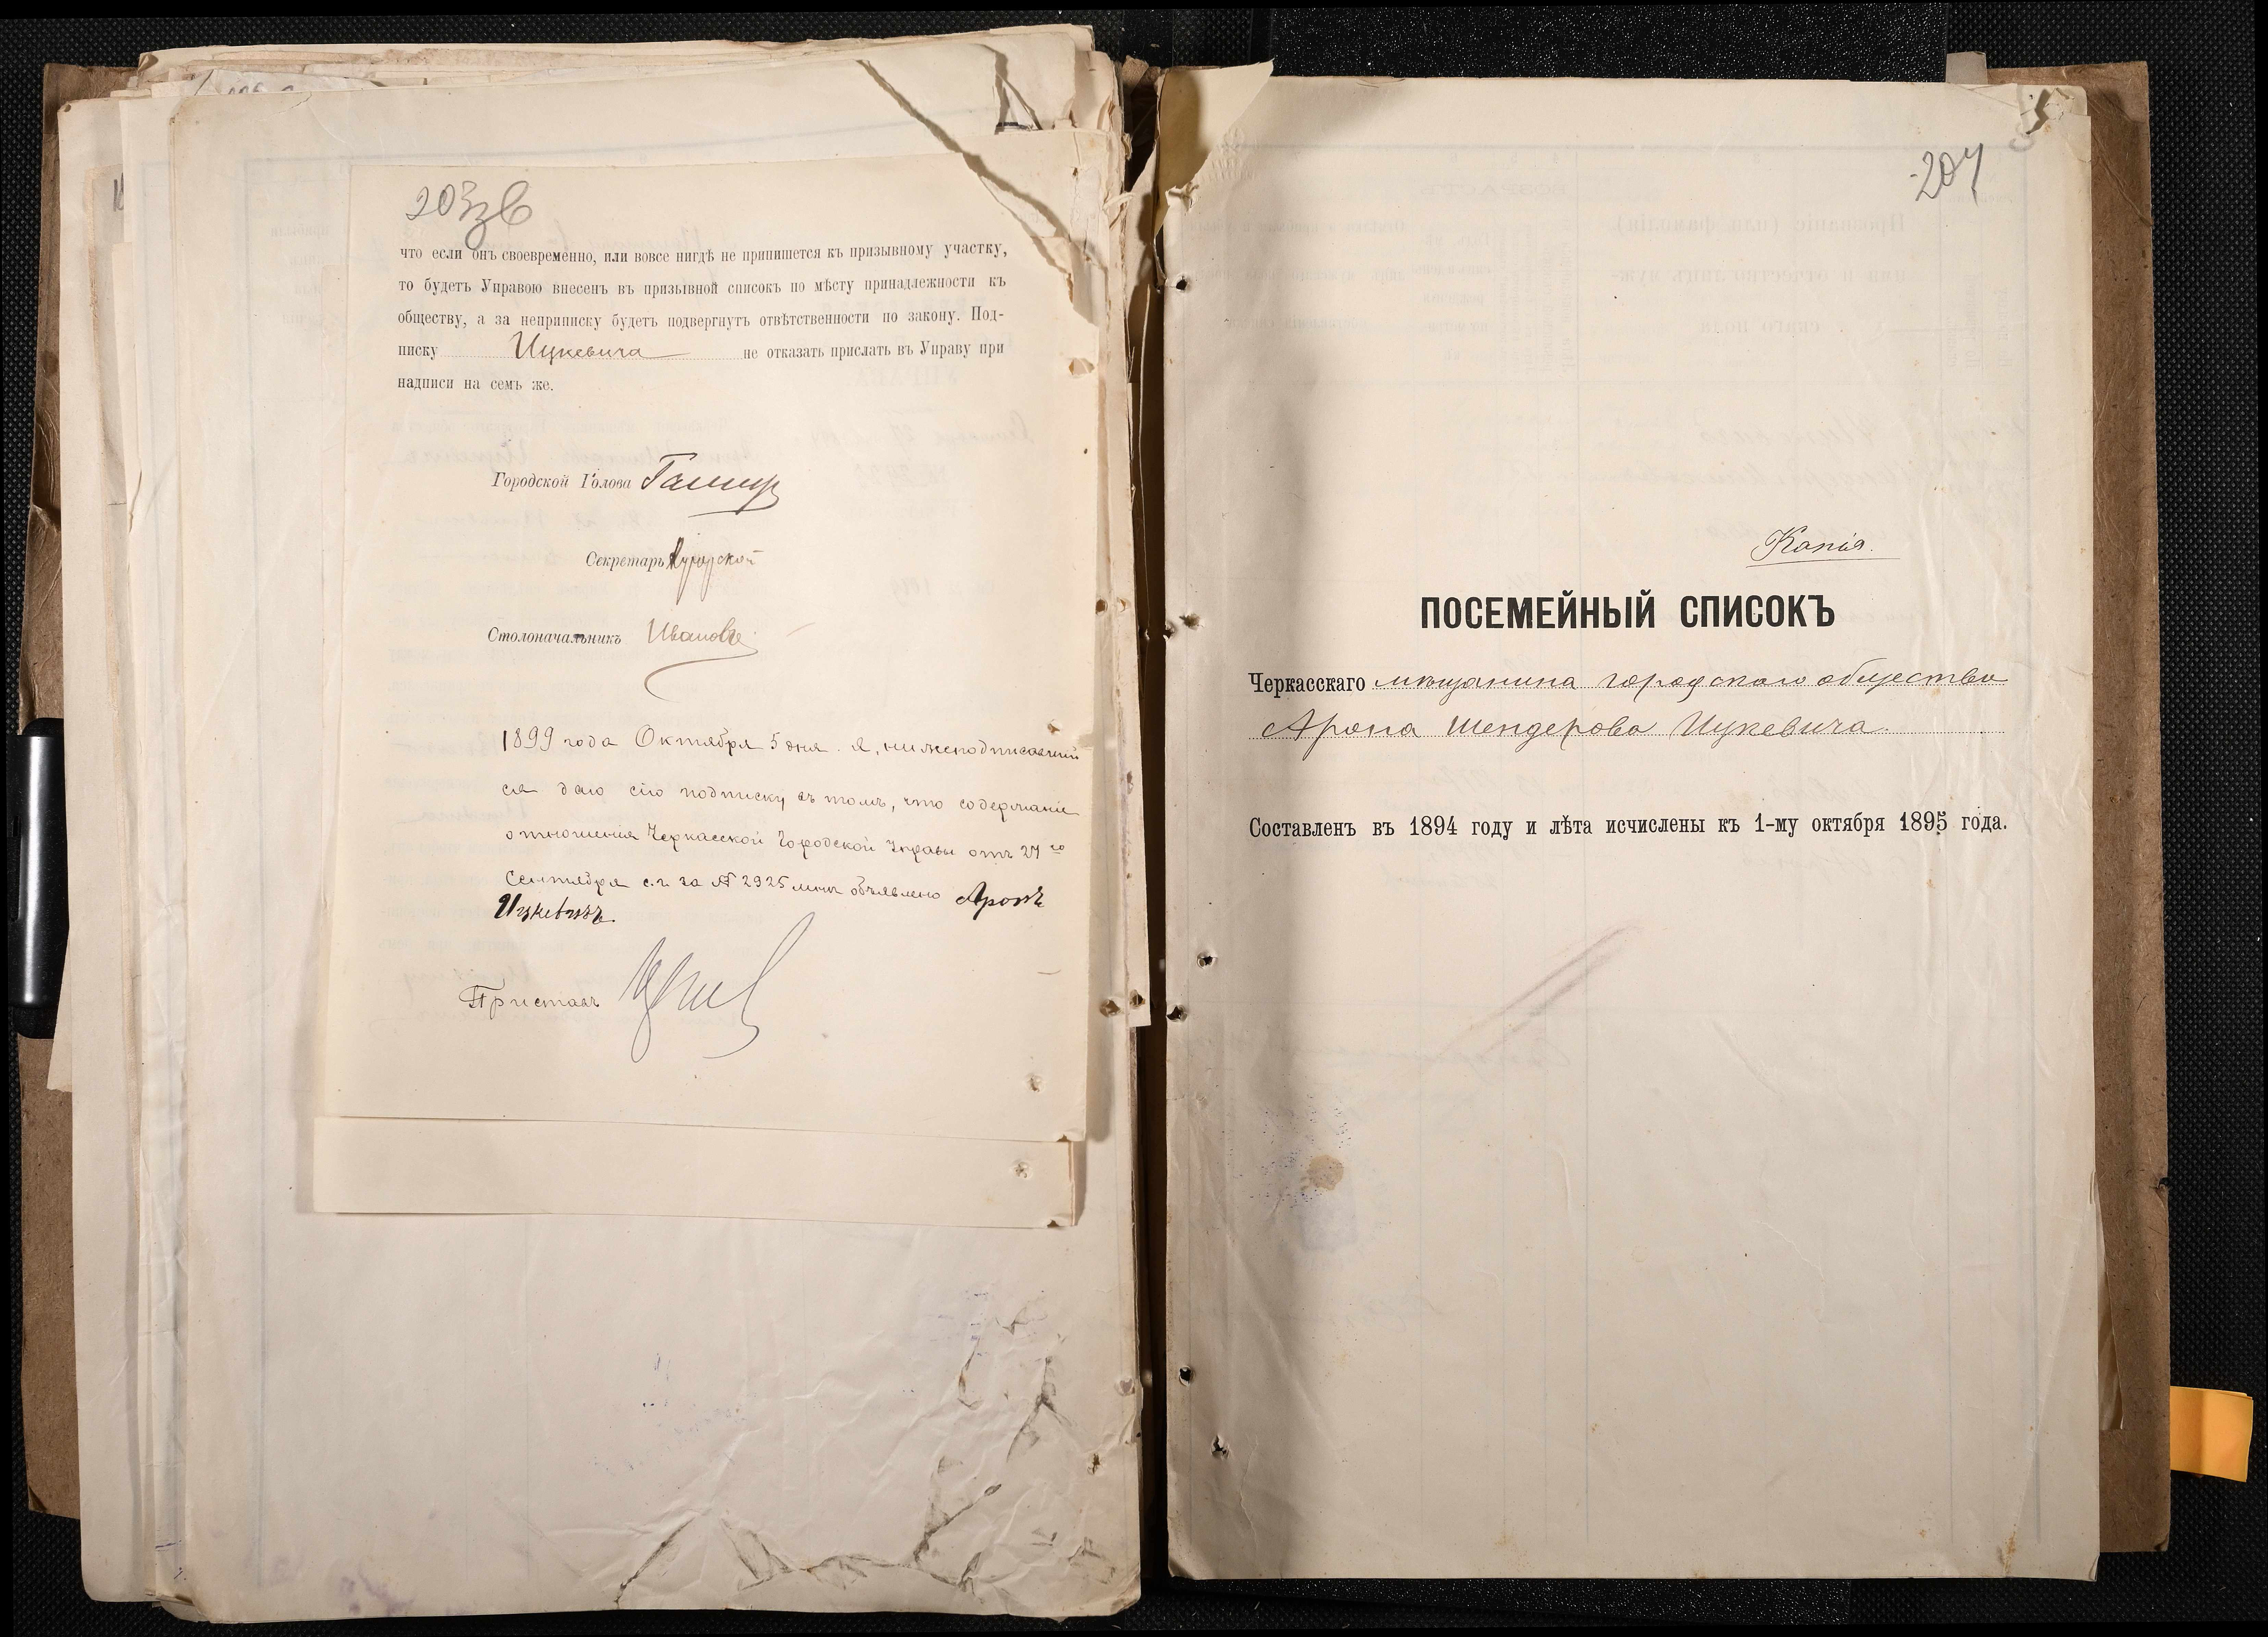 203зв
что если онъ своевременно, или вовсе нигдѣ не припишется къ призывному участку,
то будетъ Управою внесенъ въ призывной списокъ по мѣсту принадлежности къ
обществу, а за неприписку будетъ подвергнутъ отвѣтственности по закону. Под-
писку Ицкевича не отказать прислать въ Управу при
надписи на семъ же.
Городской Голова
Секретарь
Столоначальникъ Ивановъ
1899 года Октября 5 дня. я, нижеподписавший
ся даю сію подписку въ томъ, что содержаніе
отношенія Черкасской Городской Управы отъ 27го
Сентября с.г. за № 2925 мнѣ объявлено Аронъ
Ицкевичъ.
Приставъ
204
Копія.
ПОСЕМЕЙНЫЙ СПИСОКЪ
Черкасскаго мѣщанина городскаго общества
Арона Шендерова Ицкевича.
Составленъ въ 1894 году и лѣта исчислены къ 1-му октября 1895 года.